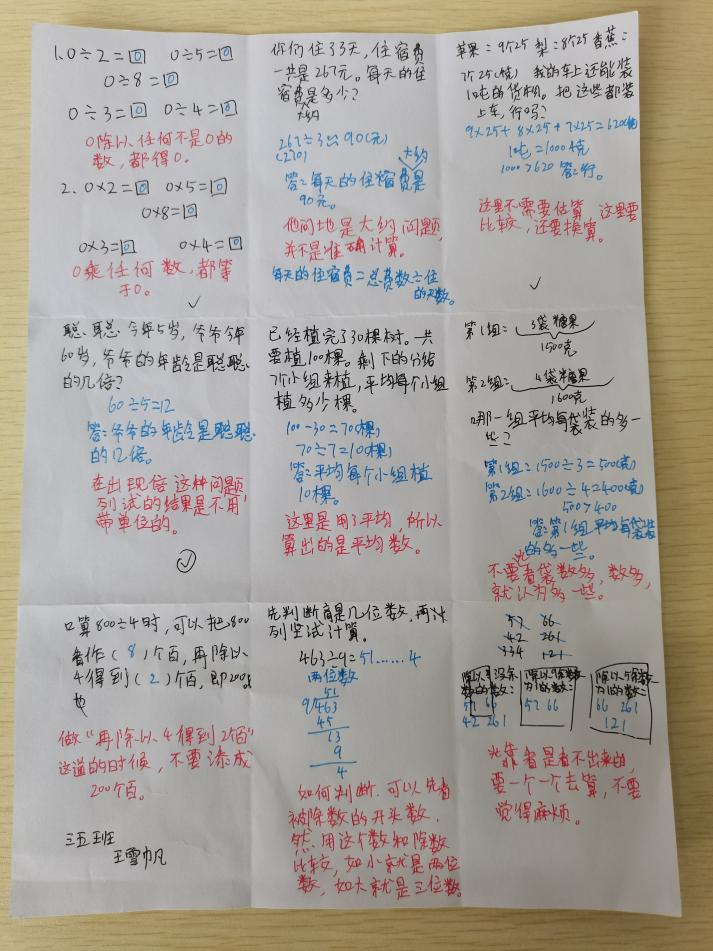 1. 0÷2=0 0÷5=0
0÷8=0
0÷3=0 0÷4=0
0除以任何不是0的
数，都得0。
2. 0×2=0 0×5=0
0×8=0
0×3=0 0×4=0
0乘任何数，都等
于0。
你们住了3天，住宿费
一共是267元。每天的住
宿费是多少？
大约
267÷3≈90(元)
(270)
大约
答：每天的住宿费是
90元。
他问地是大约问题，
并不是准确计算。
每天的住宿费=总费数÷住
的天数。
苹果：9个25 梨：8个25 香蕉：
7个25(千克) 我的车上还能装
1吨的货物。把这些都装
上车，行吗？
9×25+8×25+7×25=620(千克)
1吨=1000千克
1000>620 答：行。
这里不需要估算，这里要
比较，还要换算。
聪聪今年5岁，爷爷今年
60岁，爷爷的年龄是聪聪
的几倍？
60÷5=12
答：爷爷的年龄是聪聪
的12倍。
在出现倍这种问题，
列试的结果是不用
带单位的。
已经植完了30棵树。一共
要植100棵。剩下的分给
7个小组来植，平均每个小组
植多少棵。
100-30=70(棵)
70÷7=10(棵)
答：平均每个小组植
10棵。
这里是用了平均，所以
算出的是平均数。
第1组： 3袋糖果
1500克
第2组： 4袋糖果
1600克
哪一组平均每袋装的多一
些？
第1组：1500÷3=500(克)
第2组：1600÷4=400(克)
500>400
答：第1组平均每袋装
的多一些。
不要看袋数多，数多，
就认为多一些。
口算800÷4时，可以把800
看作(8)个百，再除以
4得到(2)个百，即200。
做“再除以4得到2个百”
这道的时候，不要添成
200个百。
三五班
王雪帆
先判断商是几位数，再
列竖试计算。
463÷9=51……4
两位数
51
9 463
45
13
9
4
如何判断，可以先看
被除数的开头数，
然用这个数和除数
比较，如小就是两位
数，如大就是三位数。
57 66
42 261
334 121
57 66
42 261
57 66
66 261
121
光靠看是看不出来的，
要一个一个去算，不要
觉得麻烦。